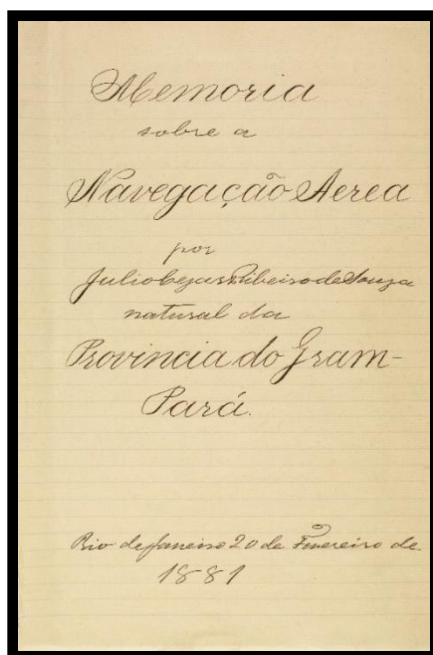 Memoria
sobre a
Navegação Aerea
por
Julio Cezar Ribeiro de Souza
natural da
Provincia do Gram-
Pará.
Rio de Janeiro 20 de Fevereiro de
1881